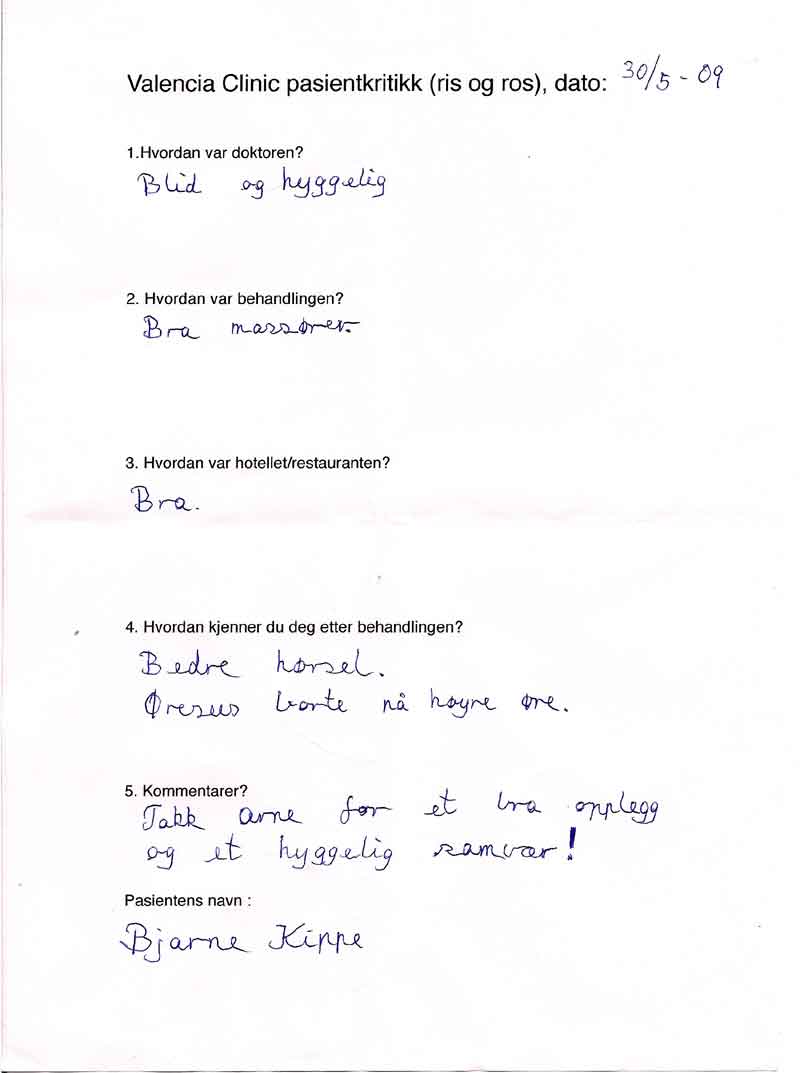 Valencia Clinic pasientkritikk (ris og ros), dato: 30/5 - 09
1.Hvordan var doktoren?
Blid og hyggelig
2. Hvordan var behandlingen?
Bra massører.
3. Hvordan var hotellet/restauranten?
Bra.
4. Hvordan kjenner du deg etter behandlingen?
Bedre hørsel.
Øresus borte på høyre øre.
5. Kommentarer?
Takk Arne for et bra opplegg
og et hyggelig samvær!
Pasientens navn :
Bjarne Kippe